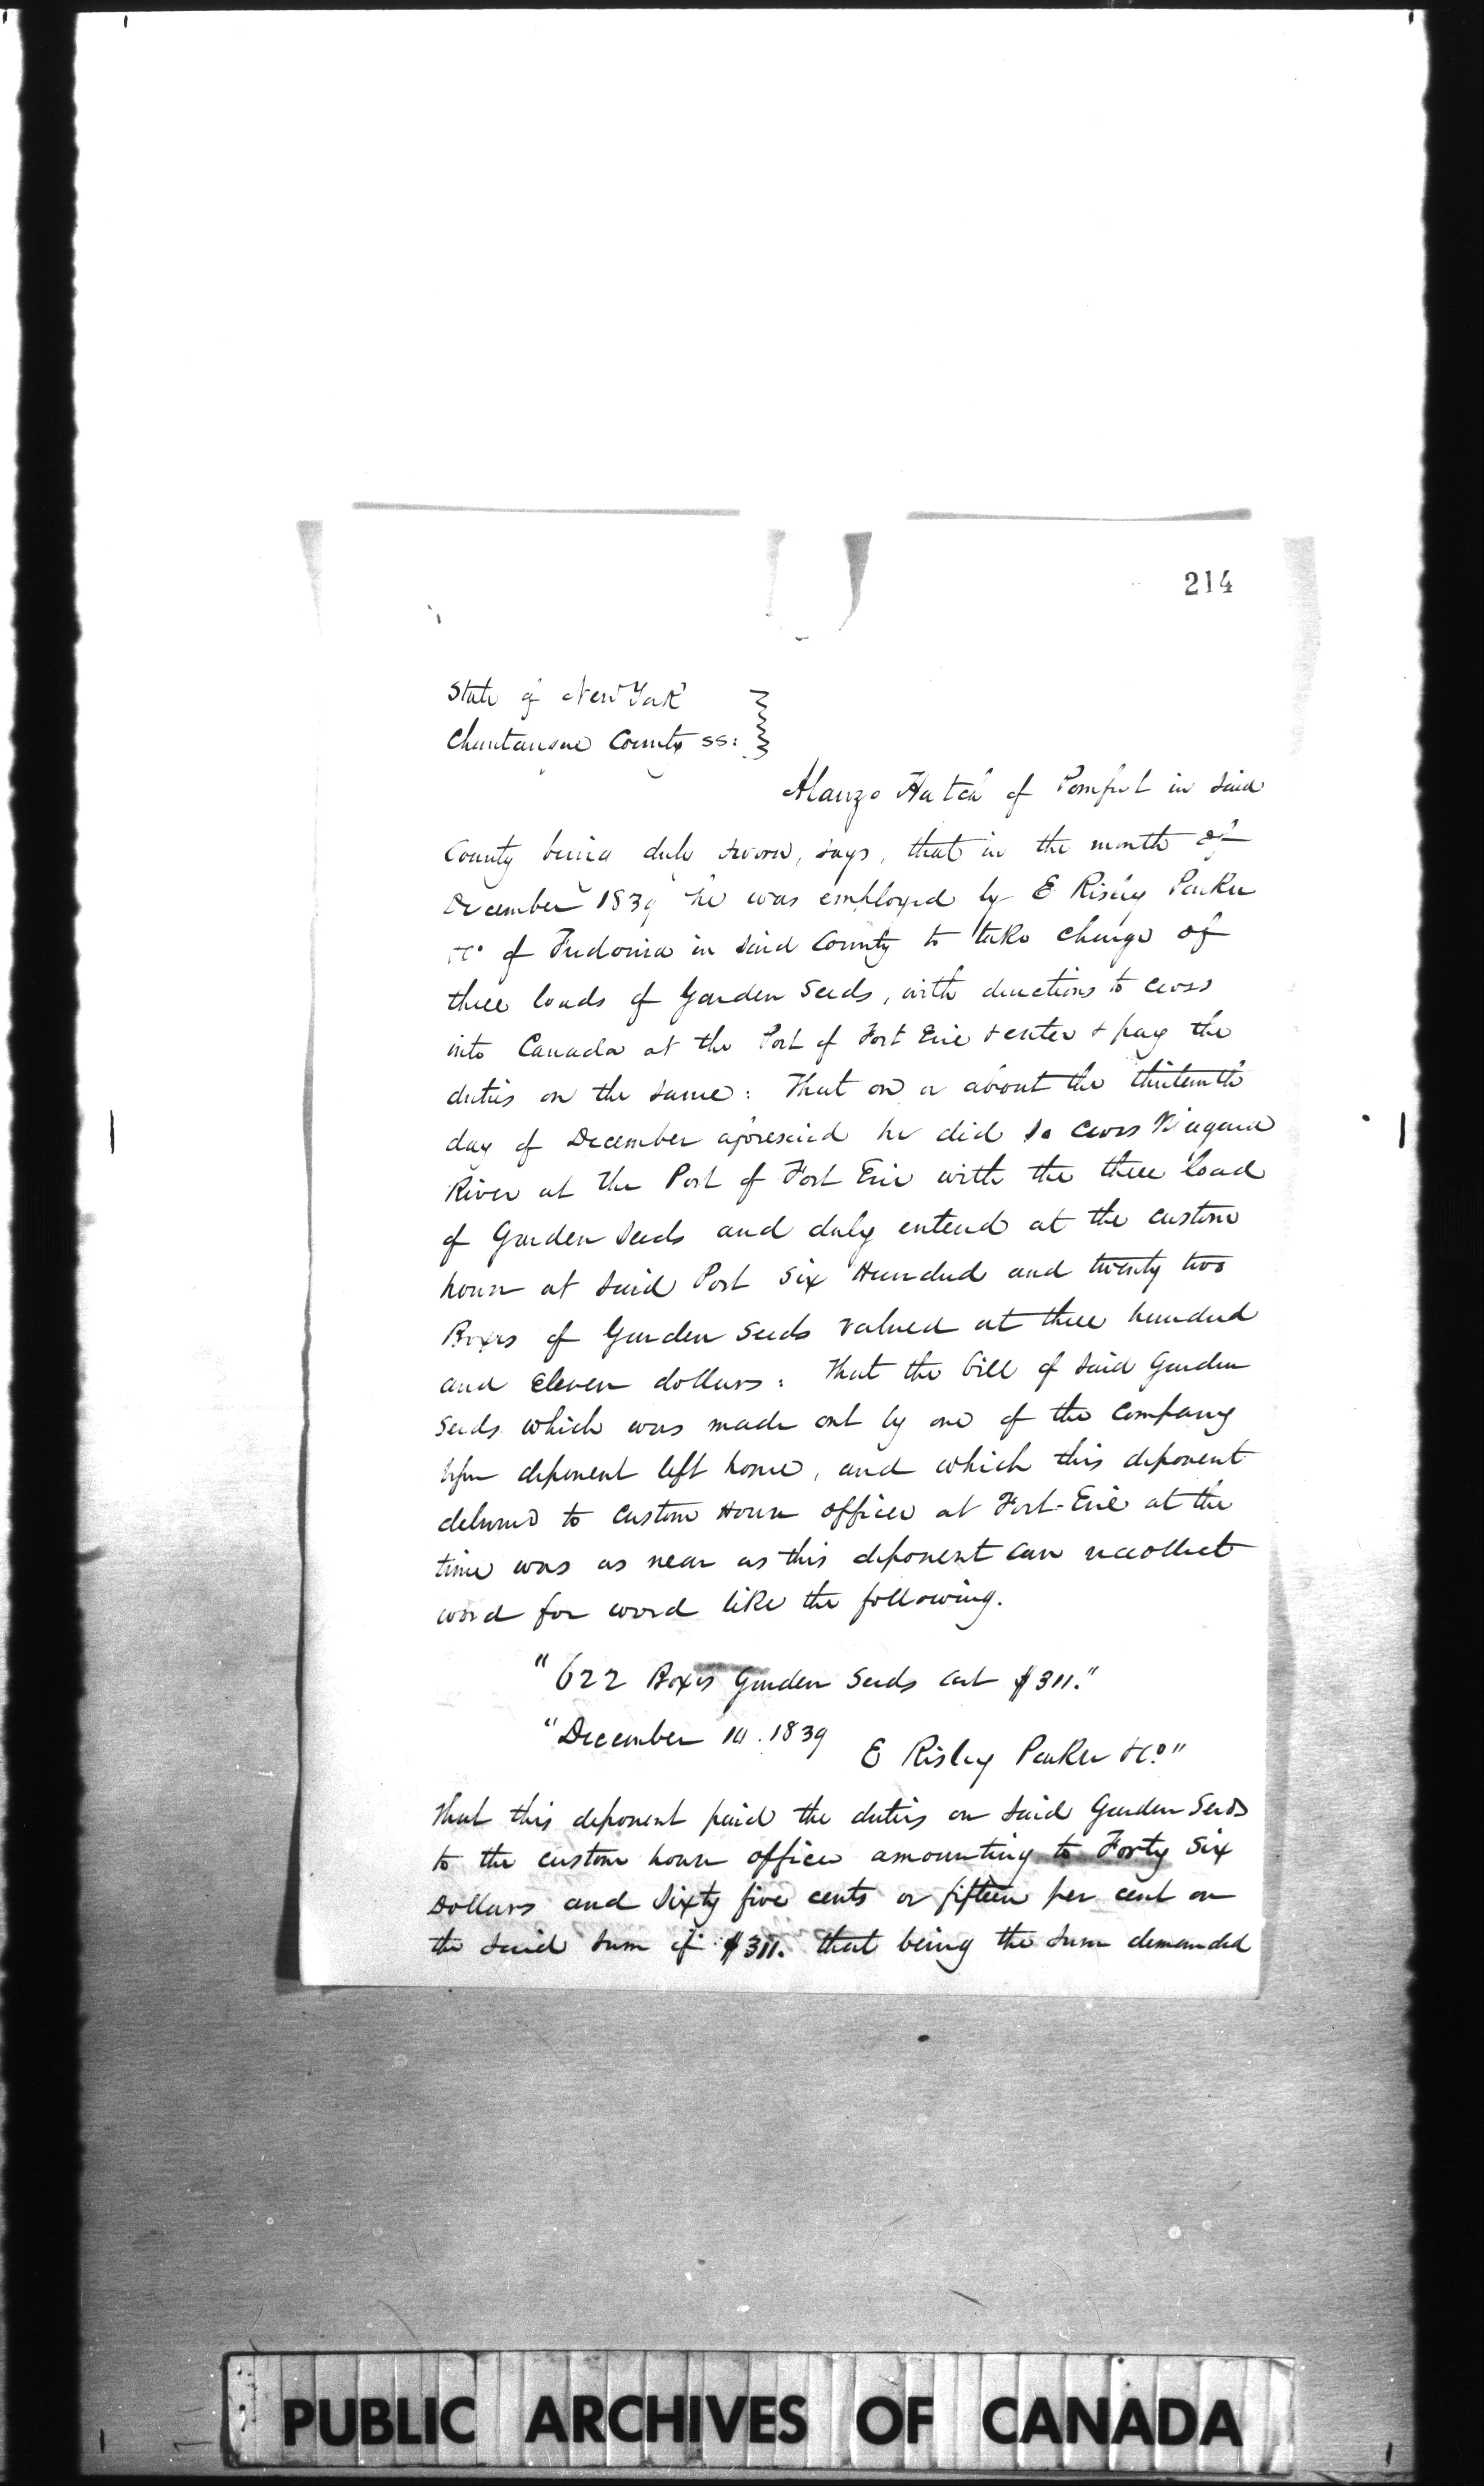 214
State of New York
Chautauque County ss:
Alanzo Hatch of Pomfret in said
County being duly sworn, says, that in the month of
December 1839 he was employed by E Risley Parker
&Co of Fredonia in said County to take charge of
three loads of Garden Seeds, with directions to cross
into Canada at the Port of Fort Erie & enter & pay the
duties on the same: That on or about the thirteenth
day of December aforesaid he did so cross Niagara
River at the Port of Fort Erie with the three load
of Garden Seeds and duly entered at the custom
house at said Port Six Hundred and twenty two
Boxes of Garden Seeds valued at three hundred
and Eleven dollars: That the bill of said Garden
Seeds which was made out by one of the Company
before deponent left home, and which this deponent
delivered to Custom House officer at Fort-Erie at the
time was as near as this deponent can recollect
word for word like the following.
"622 Boxes Garden Seeds cost $311."
"December 10. 1839
E Risley Parker &Co."
That this deponent paid the duties on said Garden Seeds
to the custom house officer amounting to Forty Six
Dollars and sixty five cents or fifteen per cent on
the said sum of $311. that being the sum demanded
PUBLIC ARCHIVES OF CANADA